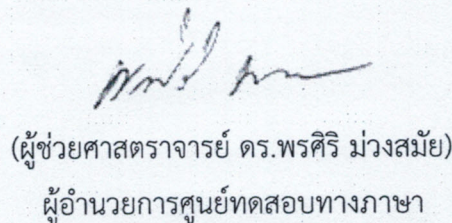 (ผู้ช่วยศาสตราจารย์ ดร.พรศิริ ม่วงสมัย)
ผู้อำนวยการศูนย์ทดสอบทางภาษา